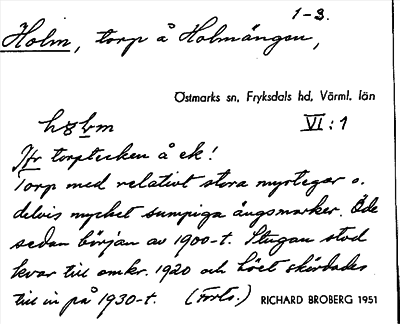 1-3.
Holm, torp å Holmängen,
Östmarks sn, Fryksdals hd, Värml. län
VI:1
Jfr torptecken å ek!
Torp med relativt stora myrtegar o.
delvis mycket sumpiga ängsmarker. Öde
sedan början av 1900-t. Stugan stod
kvar till omkr. 1920 och höet skördades
till in på 1930-t. (Forts.) RICHARD BROBERG 1951